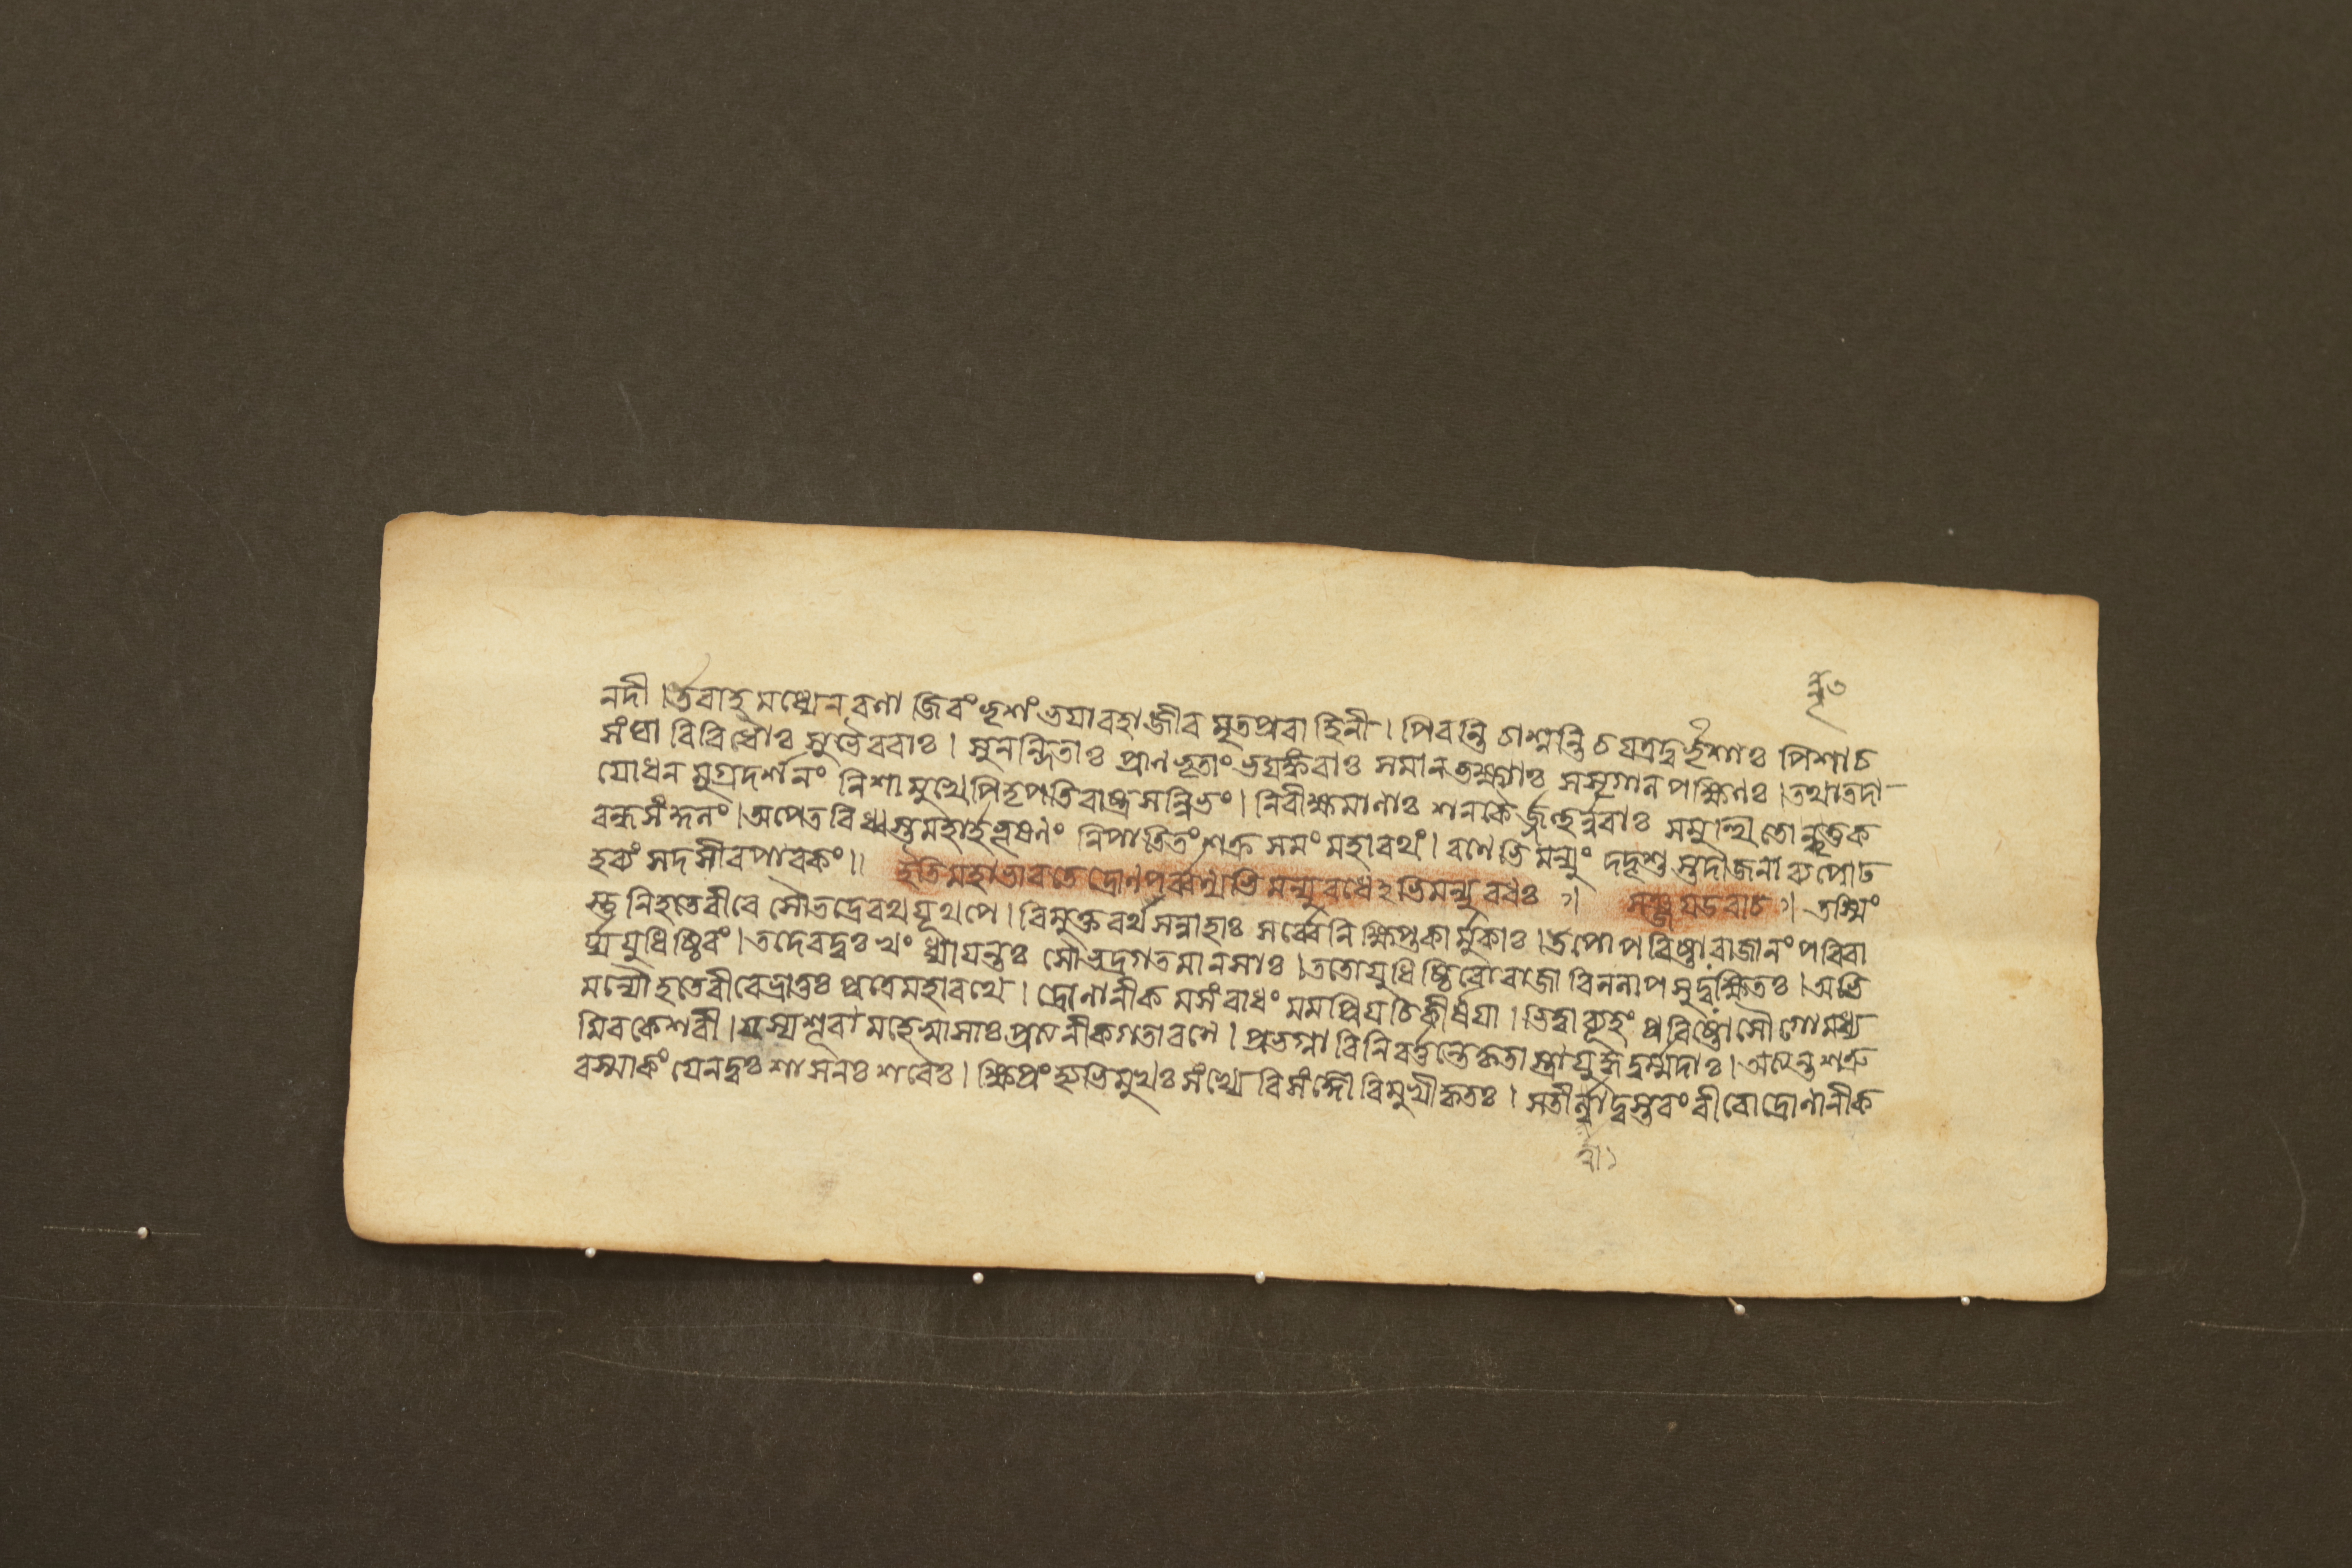 নদী। উবাহ মধ্যেন বণা জিবং ভৃশং ভযাবহা জীব মৃতপ্রবাহিনী। পিবন্তি চাশ্নন্তি চ যত্রদুর্দৃশাঃ পিশাচ
সংঘা বিবিধাঃ সুভৈববাঃ। সুনন্দিতাঃ প্রাণভৃতাং ভযঙ্কবাঃ সমানভক্ষাঃ সসৃগালপক্ষিণঃ। তথাতদা
যোধন মুগ্রদর্শনং নিশামুখে পিতৃপতিবাষ্ট্রসন্নিভং। নিবীক্ষমাণাঃ শনকৈর্জহুর্ন্নবাঃ সমুত্থিতোন্মৃত্তক
বন্ধসংকুলং। অপেত বিধ্বস্তমহার্হভূষণং নিপাতিতং শক্র সমং মহাবথং। বণেভিমন্যুং দদৃশু স্তদাজনা ব্যপোঢ
হব্যং সদসীবপাবকং॥ ইতি মহাভাবতে দ্রোণপর্ব্বণ্যভিমন্যুবধেঽভিমন্যু বধঃ॥ সঞ্জযউবাচ॥ তস্মিং
স্তু নিহতেবীবে সৌভদ্রেবথযূথপে। বিমুক্ত বর্থসন্নাহাঃ সর্ব্বেনিক্ষিপ্তকার্ম্মুকাঃ। উপোপবিষ্টাবাজানং পবিবা
র্য্য যুধিষ্ঠিবং। তদেবদুঃখং ধ্যাযন্তঃ সৌভদ্রগতমানসাঃ। ততোযুধিষ্ঠিবোবাজা বিললাপ সুদুঃক্ষিতঃ। অভি
মন্যৌ হতেবীবেভ্রাতুঃ পুত্রেমহাবথে। দ্রোণানীক মসংবাধং মমপ্রিয চিকীর্ষযা। ভিত্বাব্যূহং প্রবিষ্টোসৌ গোমধ্য
মিবকেশবী। যস্যশূবা মহেষ্বাসাঃ প্রত্যনীকগতাবণে। প্রভগ্না বিনিবর্ত্তন্তেকৃতাস্ত্রাযুদ্ধদুর্ম্মদাঃ। অত্যন্তশত্রু
বস্মাকং যেনদুঃশাসনঃ শবৈঃ। ক্ষিপ্রং হ্যভিমুখঃ সংখ্যে বিসংজ্ঞো বিমুখীকৃতঃ। সতীর্ত্বাদুস্তবং বীবোদ্রোণানীক